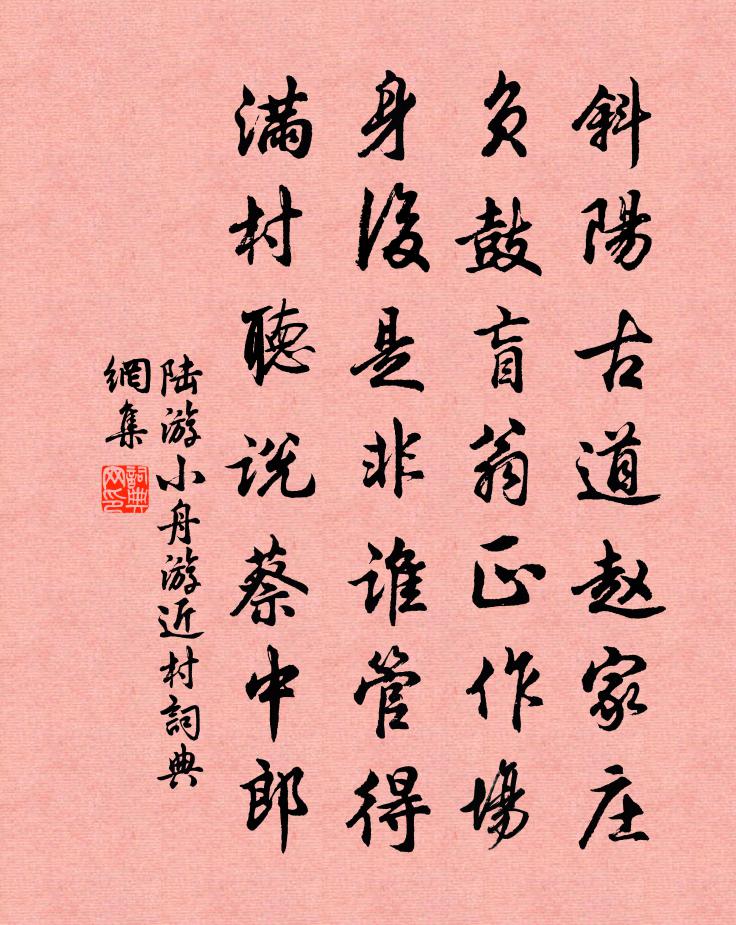 斜陽古道赵家庄
负鼓盲翁正作場
身後是非谁管得
满村聽说蔡中郎
陆游小舟游近村詞典
網集
詞典
网印